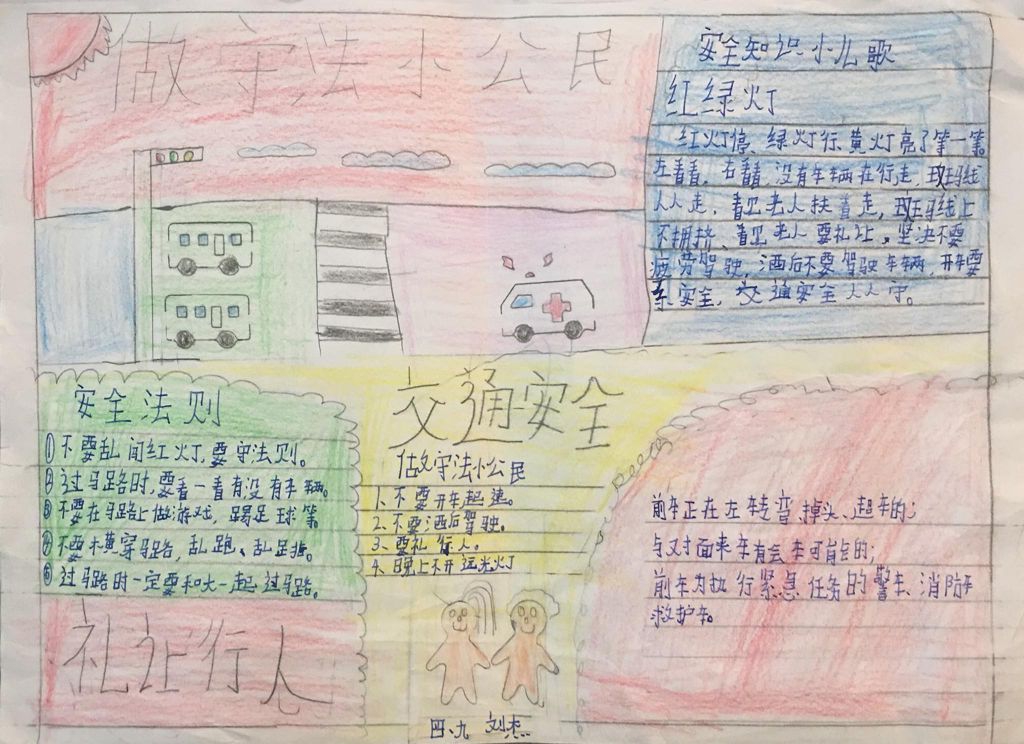 做守法小公民
安全知识小儿歌
红绿灯
红灯停、绿灯行、黄灯亮了等一等。
左看看,右看看,没有车辆在行走,斑马线
人人走,看见老人扶着走,斑马线上
不拥挤、看见老人要礼让。坚决不要
疲劳驾驶,酒后不要驾驶车辆,开车要
系安全,交通安全人人守。
安全法则
①不要乱闯红灯,要守法则。
②过马路时,要看一看有没有车辆。
③不要在马路上做游戏,踢足球等
④不要横穿马路,乱跑、乱足撞。
⑤过马路时一定要和大一起过马路。
礼让行人
交通安全
做守法小公民
1、不要开车起速。
2、不要酒后驾驶。
3、要礼行人。
4、晚上不开远光灯
前车正在左车专弯、掉头、起车的;
与对面来车有会车可能的;
前车为执行紧急任务的警车、消防车
救护车。
四、九 刘杰